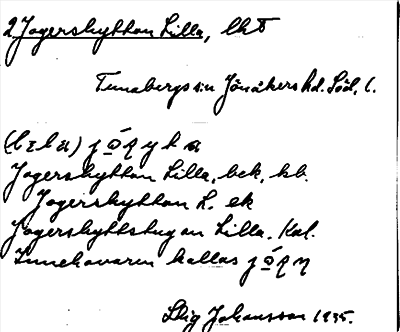 2 Jagershyttan Lilla, lht
Tunabergs sn Jönåkers hd. Söd. l.
Jagershyttan Lilla, bek, kb.
Jagershyttan L. ek
Jagershyttstugan Lilla. Kal.
Innehavaren kallas
Stig Johansson 1935.